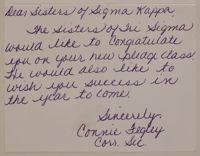 Dear Sisters of Sigma Kappa,
The Sisters of Tri Sigma
would like to congratulate
you on your new pledge class.
We would also like to
wish you success in
the year to come.
Sincerely,
Connie Fegley
Corr. Sec